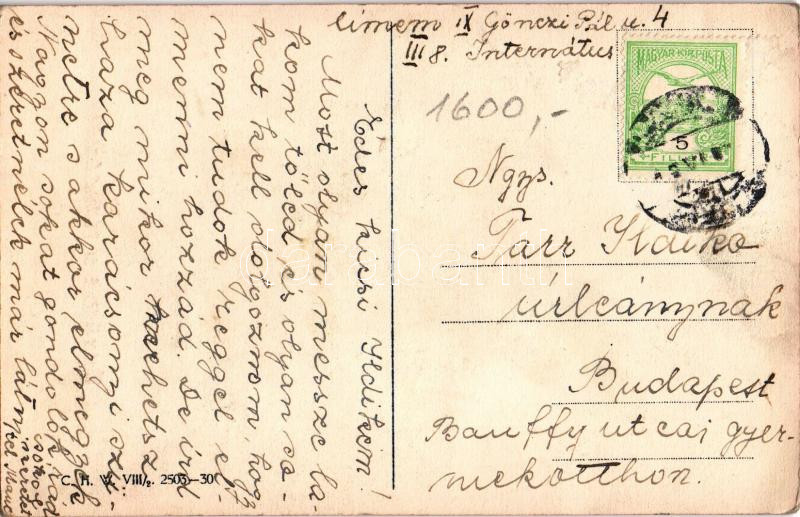 Címem IX Gönczi Pál u. 4
III 8. Internátus
MAGYAR KIR. POSTA
5
FILLÉR
1600,-
Ngys.
Tarr Ildikó
úrleánynak
Budapest
Bánffy utcai gyer-
mekotthon.
Édes kicsi Ildikóm!
Most olyan messze la-
kom tőled és olyan so-
kat kell dolgoznom, hogy
nem tudok reggel el-
menni hozzád. De írd
meg mikor mehetsz
haza karácsonyi szü-
netre s akkor elmegyek
Nagyon sokat gondolok rád
és szeretnélek már látni
sokszor
C. H. W. VIII/2. 2503-30
darabanth